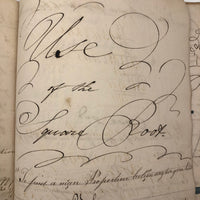 Use
of the
Square Root.
To find a mean Proportion between any two given Nu